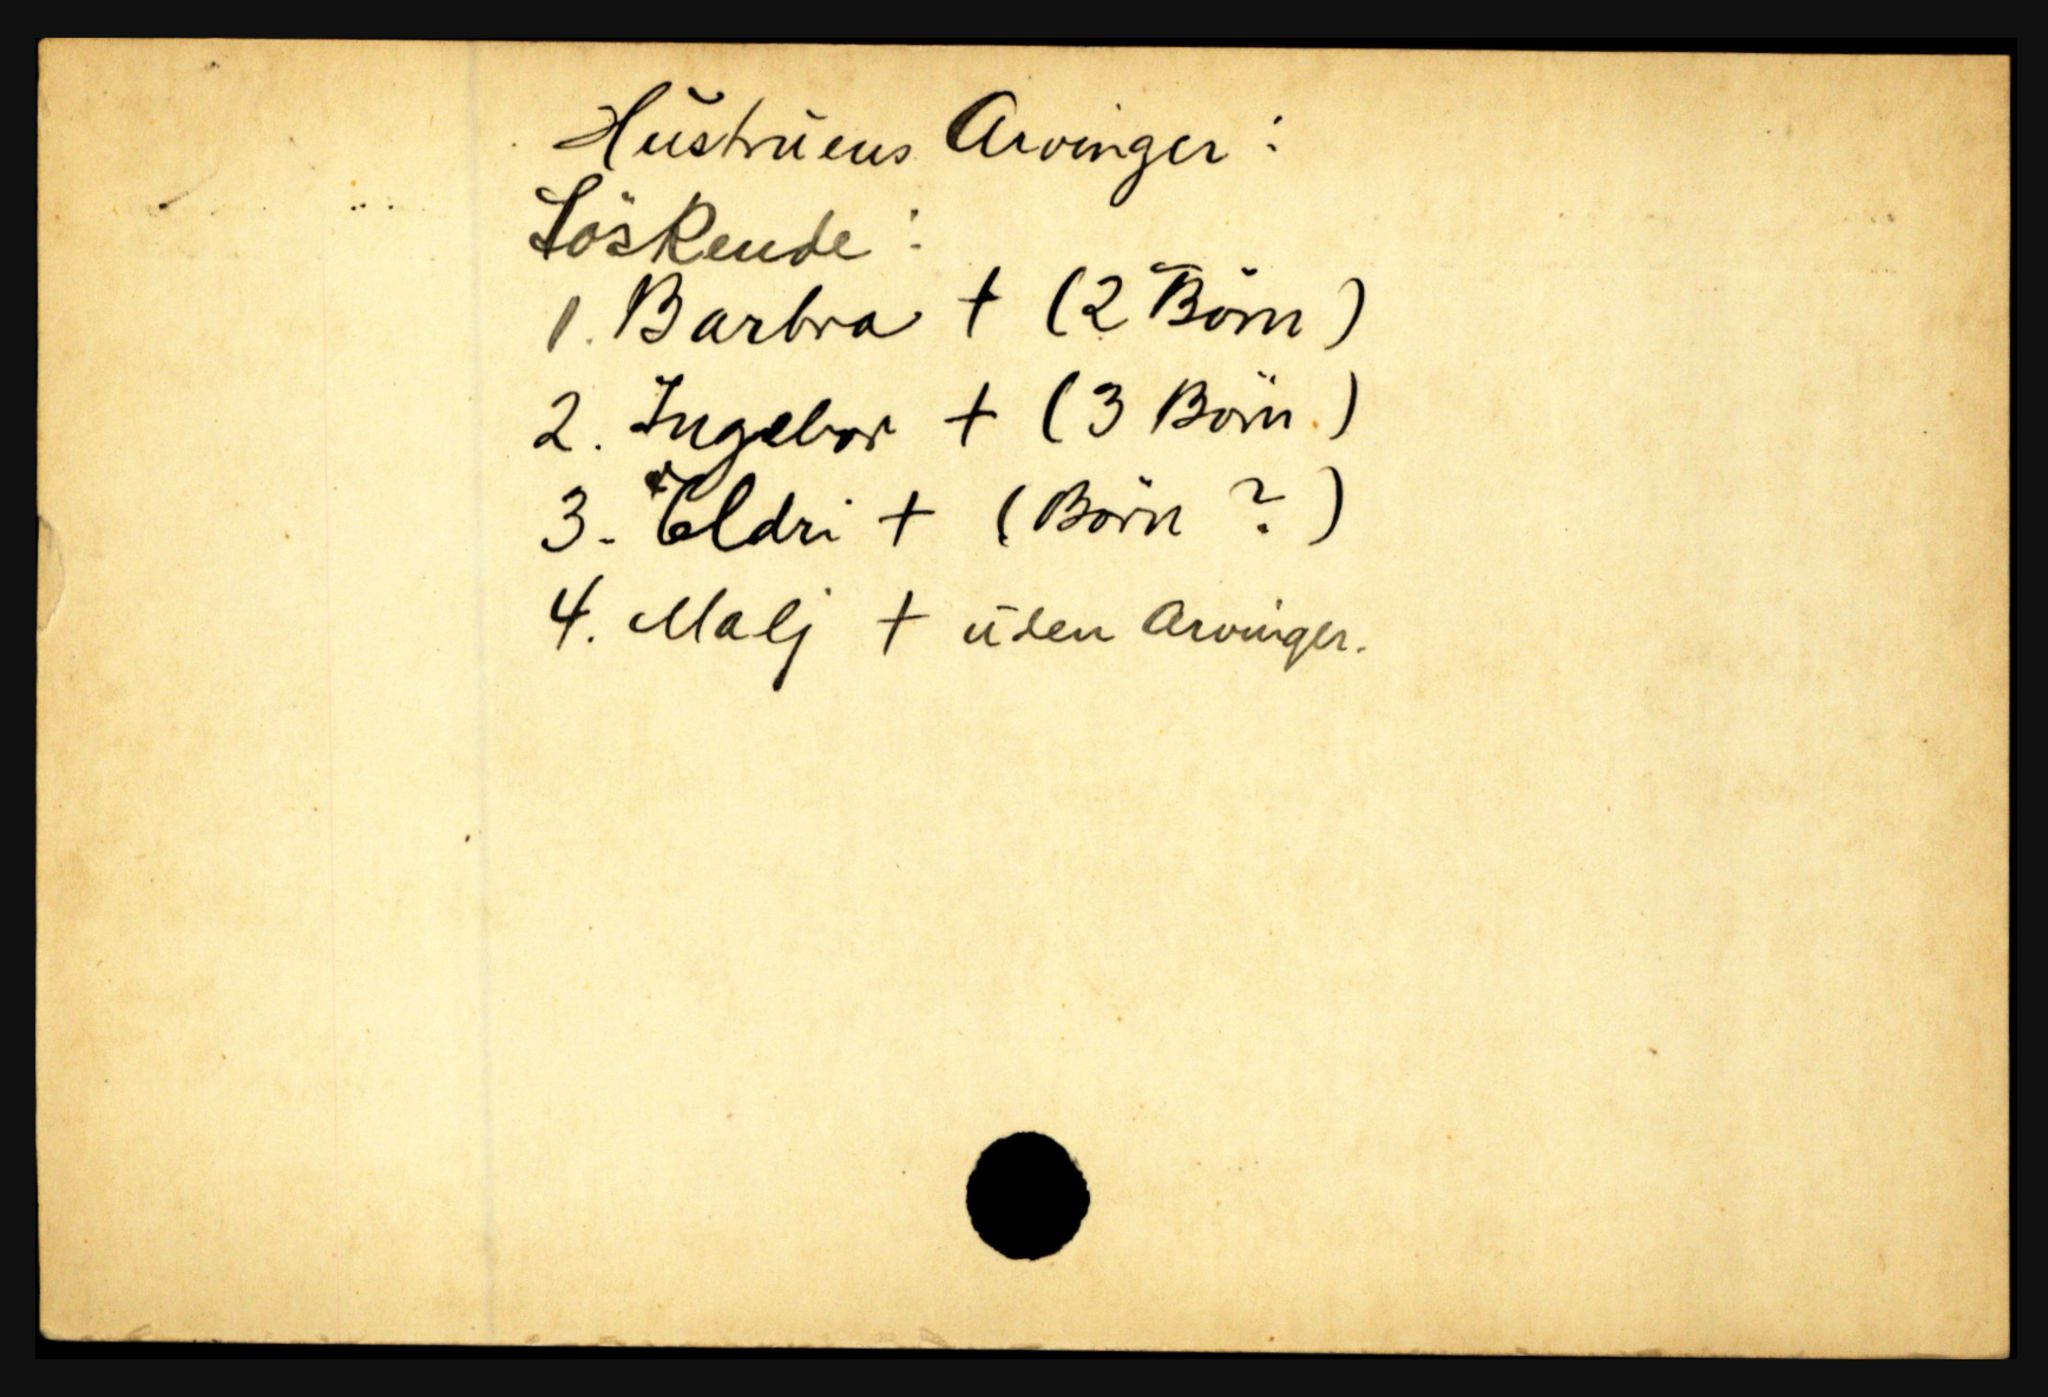 Hustruens Arvinger:
Söskende:
1. Barbra † (2 Börn)
2. Ingebor † (3 Börn)
3. Eldri † (Börn ?)
4. Malj † uden Arvinger.